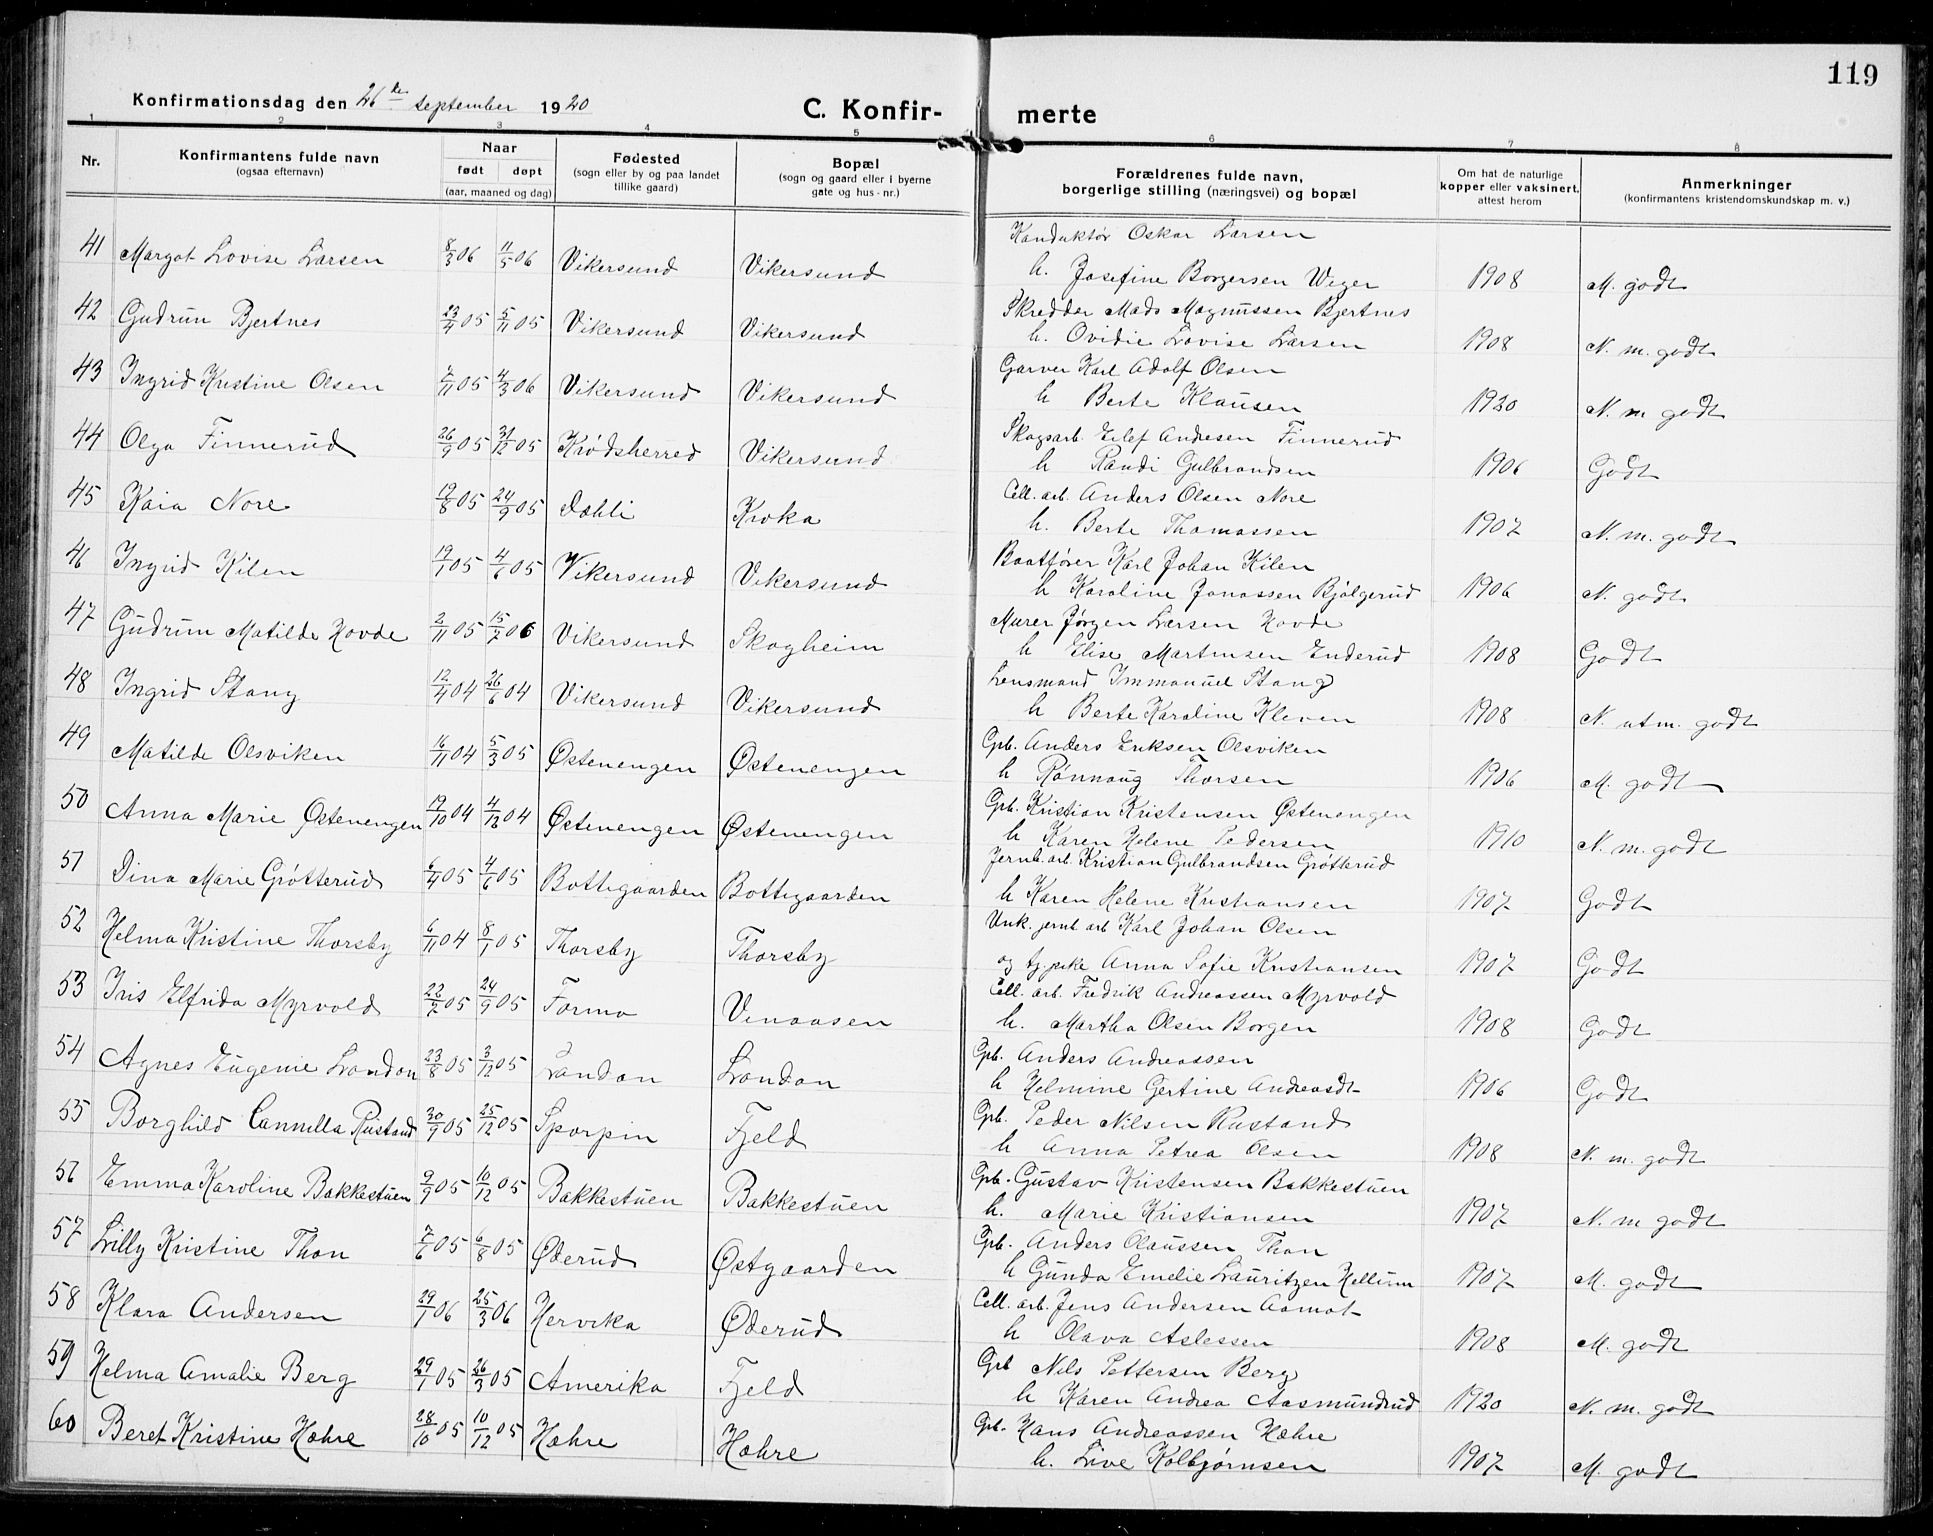 119
Konfirmationsdag den 26de september 1920
C. Konfir- merte
1 2 3 4 5 6 7 8
Nr.
Konfirmantens fulde navn
(ogsaa efternavn)
Naar
født døpt
(aar, maaned og dag)
Fødested
(sogn eller by og paa landet
tillike gaard)
Bopæl
(sogn og gaard eller i byerne
gate og hus-nr.)
Forældrenes fulde navn,
borgerlige stilling (næringsvei) og bopæl
Om hat de naturlige
kopper eller vaksinert,
attest herom
Anmerkninger
(konfirmantens kristendomskundskap m. v.)
Konduktør Oskar Larsen
41 Margot Lovise Larsen 8/3 06 11/5 06 Vikersund Vikersund h. Josefine Borgersen Weger 1908 M. godt
Skredder Mads Magnussen Bjertnes
42 Gudrun Bjertnes 23/4 05 5/11 05 Vikersund Vikersund h. Ovidie Lovise Larsen 1908 N. m. godt
Garver Karl Adolf Olsen
43 Ingrid Kristine Olsen 7/11 05 4/3 06 Vikersund Vikersund h Berte Klausen 1920 N. m godt
Skogsarb. Eilef Andresen Finnerud
44 Olga Finnerud 26/9 05 31/12 05 Krødsherred Vikersund h Randi Gulbrandsen 1906 Godt
Cell. arb. Anders Olsen Nore
45 Kaia Nore 19/8 05 24/9 05 Dæhli Kroka h. Berte Thomassen 1907 N. m. godt
Baatfører Karl Johan Kilen
46 Ingrid Kilen 19/1 05 4/6 05 Vikersund Vikersund h Karoline Jonassen Bjølgerud 1906 N. godt
Murer Jørgen Larsen Hovde
47 Gudrun Matilde Hovde 2/11 05 15/2 06 Vikersund Skogheim h Elise Martinsen Enderud 1908 Godt
Lensmand Immanuel Stang
48 Ingrid Stang 12/4 04 26/6 04 Vikersund Vikersund h Berte Karoline Kleven 1908 N. utm. godt
Gpb. Anders Eriksen Olsviken
49 Matilde Olsviken 16/11 04 5/3 05 Østenengen Østenengen h Rønnaug Thorsen 1906 M. godt
Gpb. Kristian Kristensen Østenengen
50 Anna Marie Østenengen 19/10 04 4/12 04 Østenengen Østenengen h Karen Helene Pedersen 1910 N. m. godt
Jernb. arb. Kristian Gulbrandsen Grøtterud
51 Dina Marie Grøtterud 6/4 05 4/6 05 Bottegaarden Bottegaarden h Karen Helene Kristiansen 1907 Godt
Unk. jernb arb Karl Johan Olsen
52 Helma Kristine Thorsby 6/11 04 8/1 05 Thorsby Thorsby og tj. pike Anna Sofie Kristiansen 1907 Godt
Cell. arb. Fredrik Andreassen Myrvold
53 Iris Elfrida Myrvold 22/7 05 24/9 05 Formo Vinaasen h. Martha Olsen Borgen 1908 Godt
Gpb. Anders Andreassen
54 Agnes Eugenie London 23/8 05 3/12 05 London London h Helmine Gertine Andreasdt 1906 Godt
Gpb. Peder Nilsen Rustand
55 Borghild Camilla Rustand 30/9 05 25/12 05 Sporpin Fjeld h Anna Petrea Olsen 1908 N. m. godt
Gpb. Gustav Kristensen Bakkestuen
56 Emma Karoline Bakkestuen 9/9 05 10/12 05 Bakkestuen Bakkestuen h. Marie Kristiansen 1907 N. m godt
Gpb. Anders Olaussen Thon
57 Lilly Kristine Thon 7/6 05 6/8 05 Øderud Østgaarden h Gunda Emelie Lauritzen Hellum 1907 M. godt
Cell. arb. Jens Andersen Aamot
58 Klara Andersen 29/1 06 25/3 06 Hervika Øderud h Olava Aslessen 1908 M. godt
Gpb Nils Pettersen Berg
59 Helma Amalie Berg 29/1 05 26/3 05 Amerika Fjeld h Karen Andrea Aasmundrud 1920 N. m. godt
Gpb. Hans Andreassen Hæhre
60 Beret Kristine Hæhre 28/10 05 10/12 05 Hæhre Hæhre h. Live Kolbjørnsen 1907 M. godt